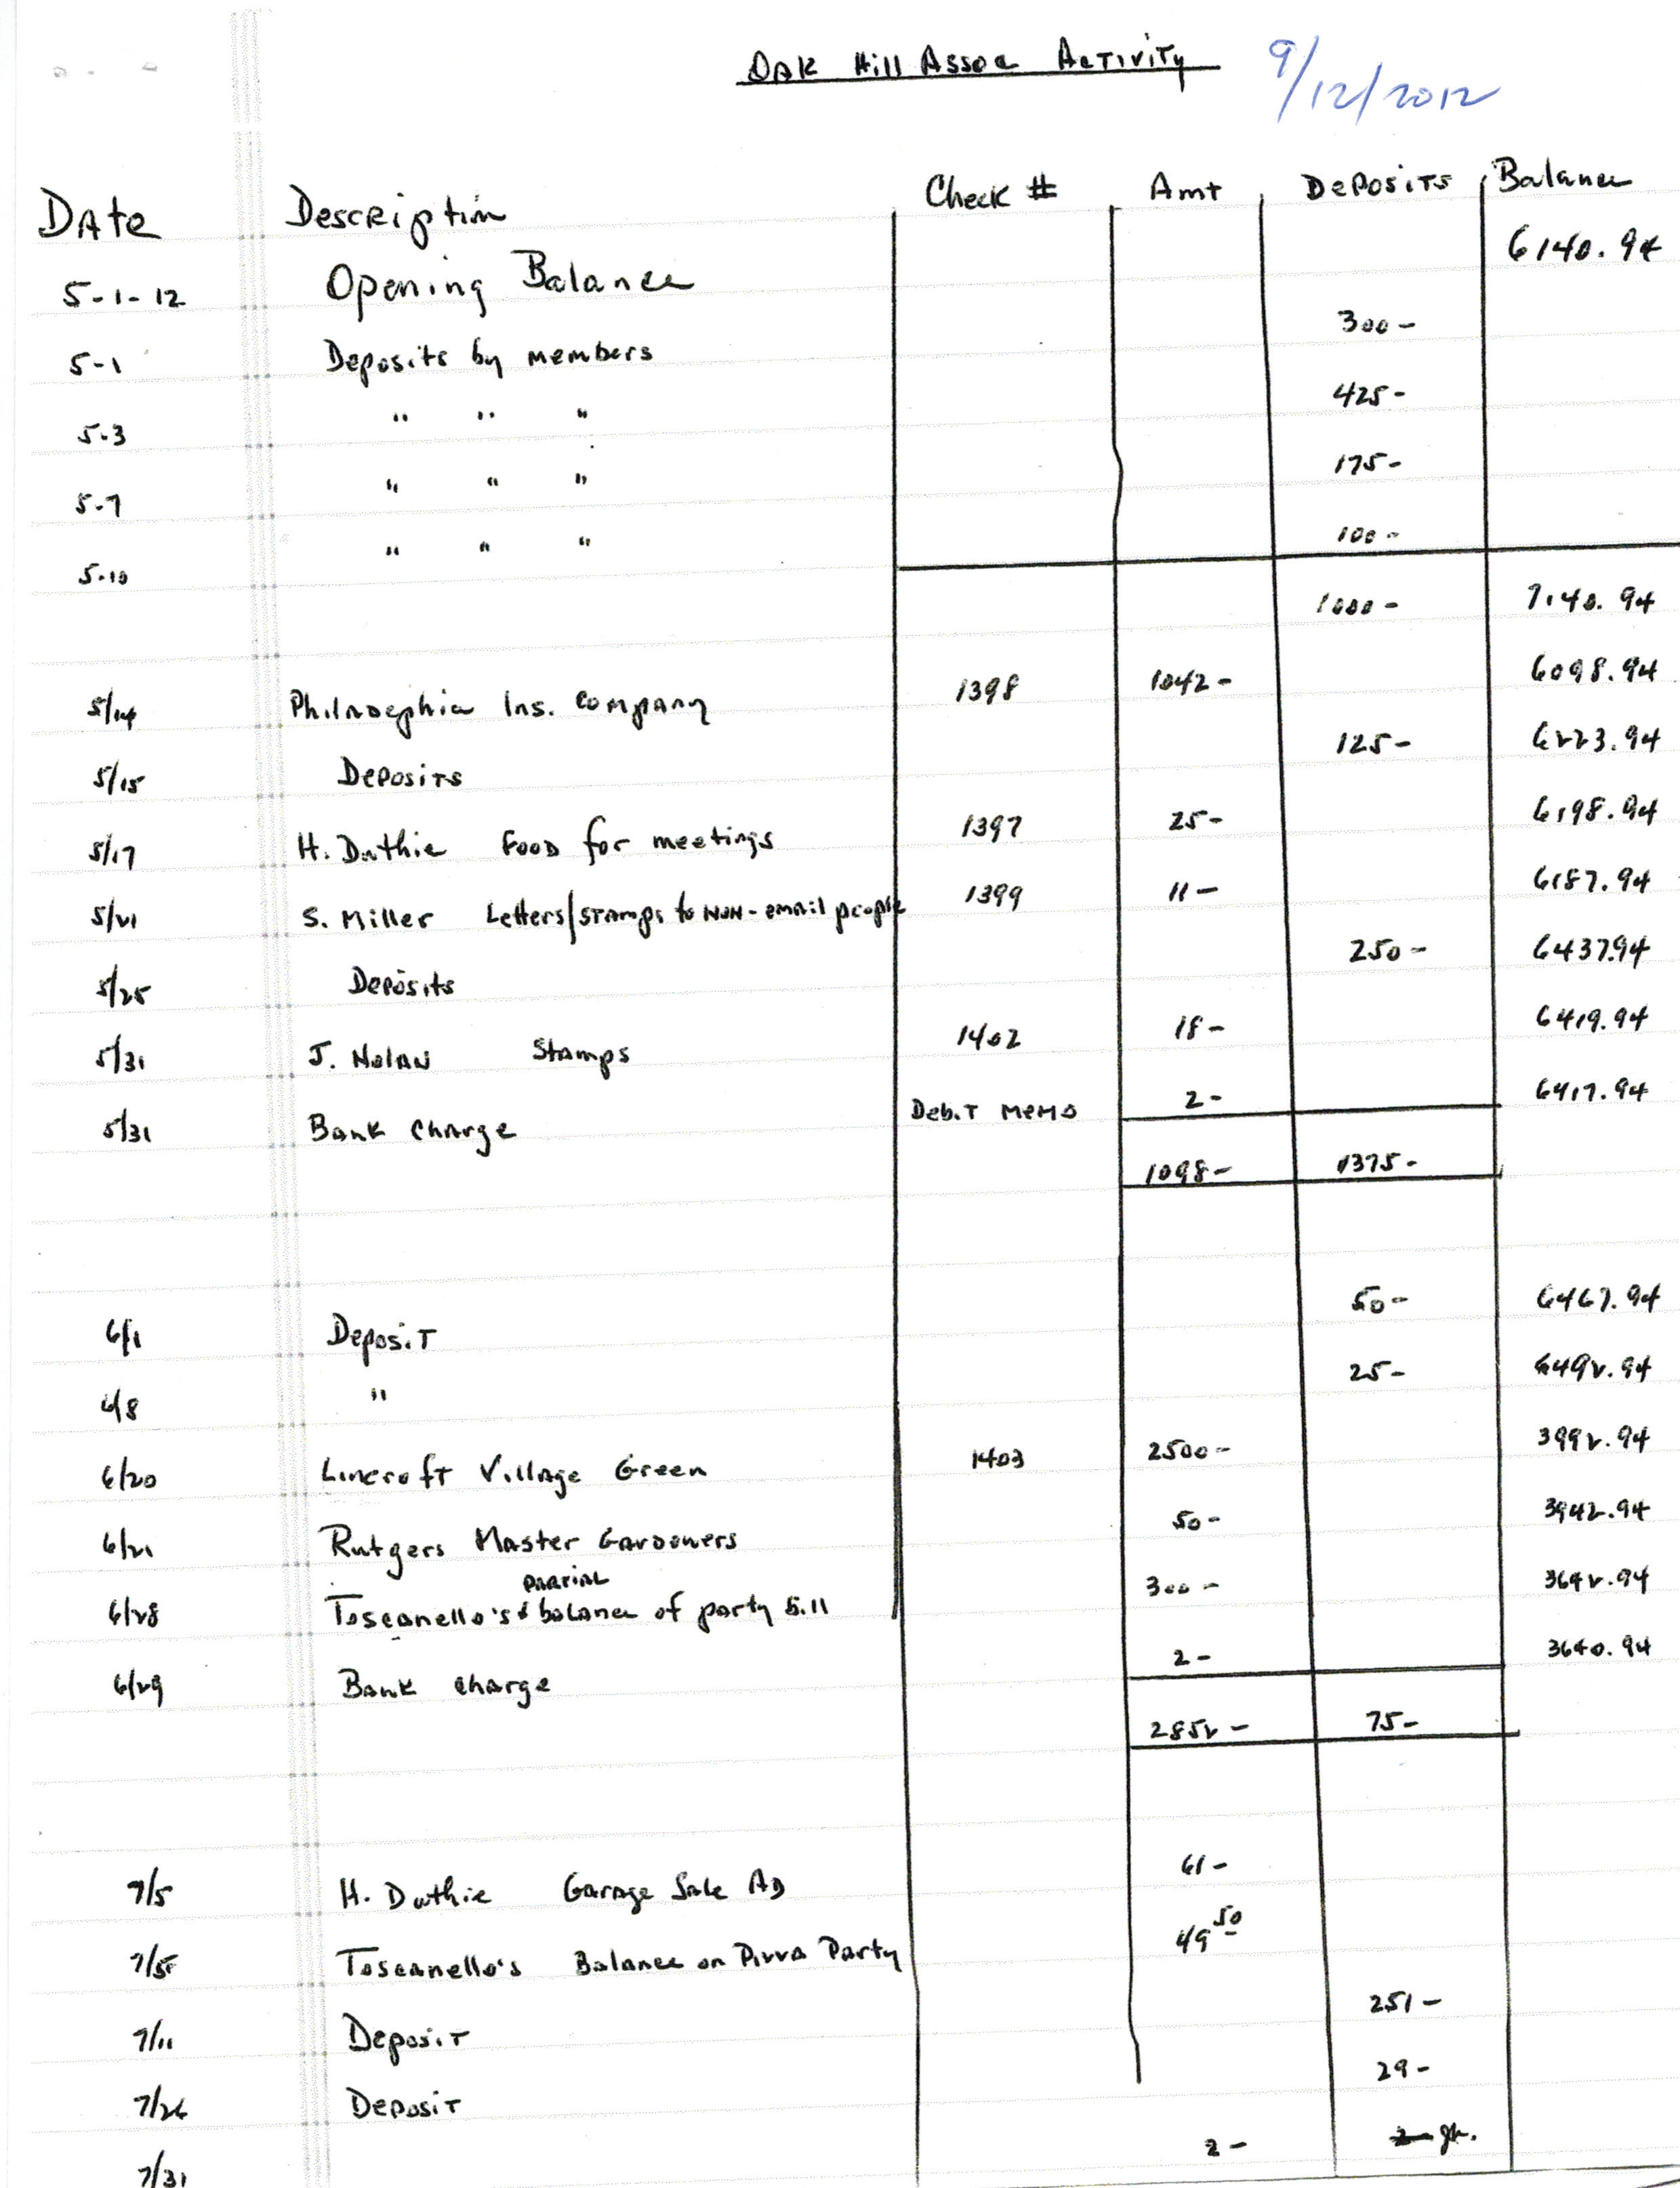 Oak Hill Assoc Activity 9/12/2012
Date Description Check # Amt Deposits Balance
5-1-12 Opening Balance 6140.94
5-1 Deposits by members 300-
5-3 " " " 425-
5-7 " " " 175-
5-10 " " " 100-
1000- 7140.94
5/14 Philadephia Ins. Company 1398 1042- 6098.94
5/15 Deposits 125- 6223.94
5/17 H. Duthie Food for meetings 1397 25- 6198.94
5/21 S. Miller Letters/stamps to non-email people 1399 11- 6187.94
5/25 Deposits 250- 6437.94
5/31 J. Nolan Stamps 1402 18- 6419.94
5/31 Bank charge Debit Memo 2- 6417.94
1098- 1375-
6/1 Deposit 50- 6467.94
6/8 " 25- 6492.94
6/20 Lincroft Village Green 1403 2500- 3992.94
6/21 Rutgers Master Gardeners 50- 3942.94
6/28 Toscanello's partial balance of party bill 300- 3642.94
6/29 Bank charge 2- 3640.94
2852- 75-
7/5 H. Duthie Garage Sale Ad 61-
7/5 Toscanello's Balance on Pizza Party 49 50
7/11 Deposit 251-
7/26 Deposit 29-
7/31 2-